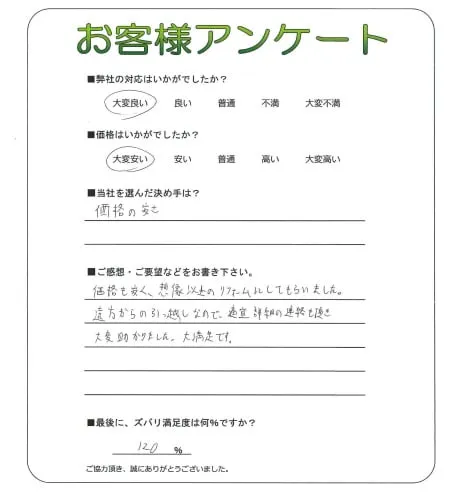 お客様アンケート
■弊社の対応はいかがでしたか？
大変良い 良い 普通 不満 大変不満
■価格はいかがでしたか？
大変安い 安い 普通 高い 大変高い
■当社を選んだ決め手は？
価格の安さ
■ご感想・ご要望などをお書き下さい。
価格も安く、想像以上のリフォームにしてもらいました。
遠方からの引っ越しなので、適宜詳細の連絡も頂き
大変助かりました。大満足です。
■最後に、ズバリ満足度は何％ですか？
120 ％
ご協力頂き、誠にありがとうございました。